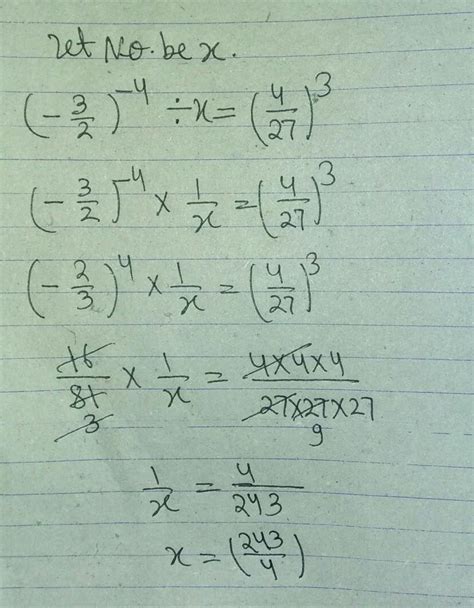 Let No. be x.
(-3/2)^-4 ÷ x = (4/27)^3
(-3/2)^-4 × 1/x = (4/27)^3
(-2/3)^4 × 1/x = (4/27)^3
16/81 3 × 1/x = 4×4×4/27×27×27 9
1/x = 4/243
x = (243/4)